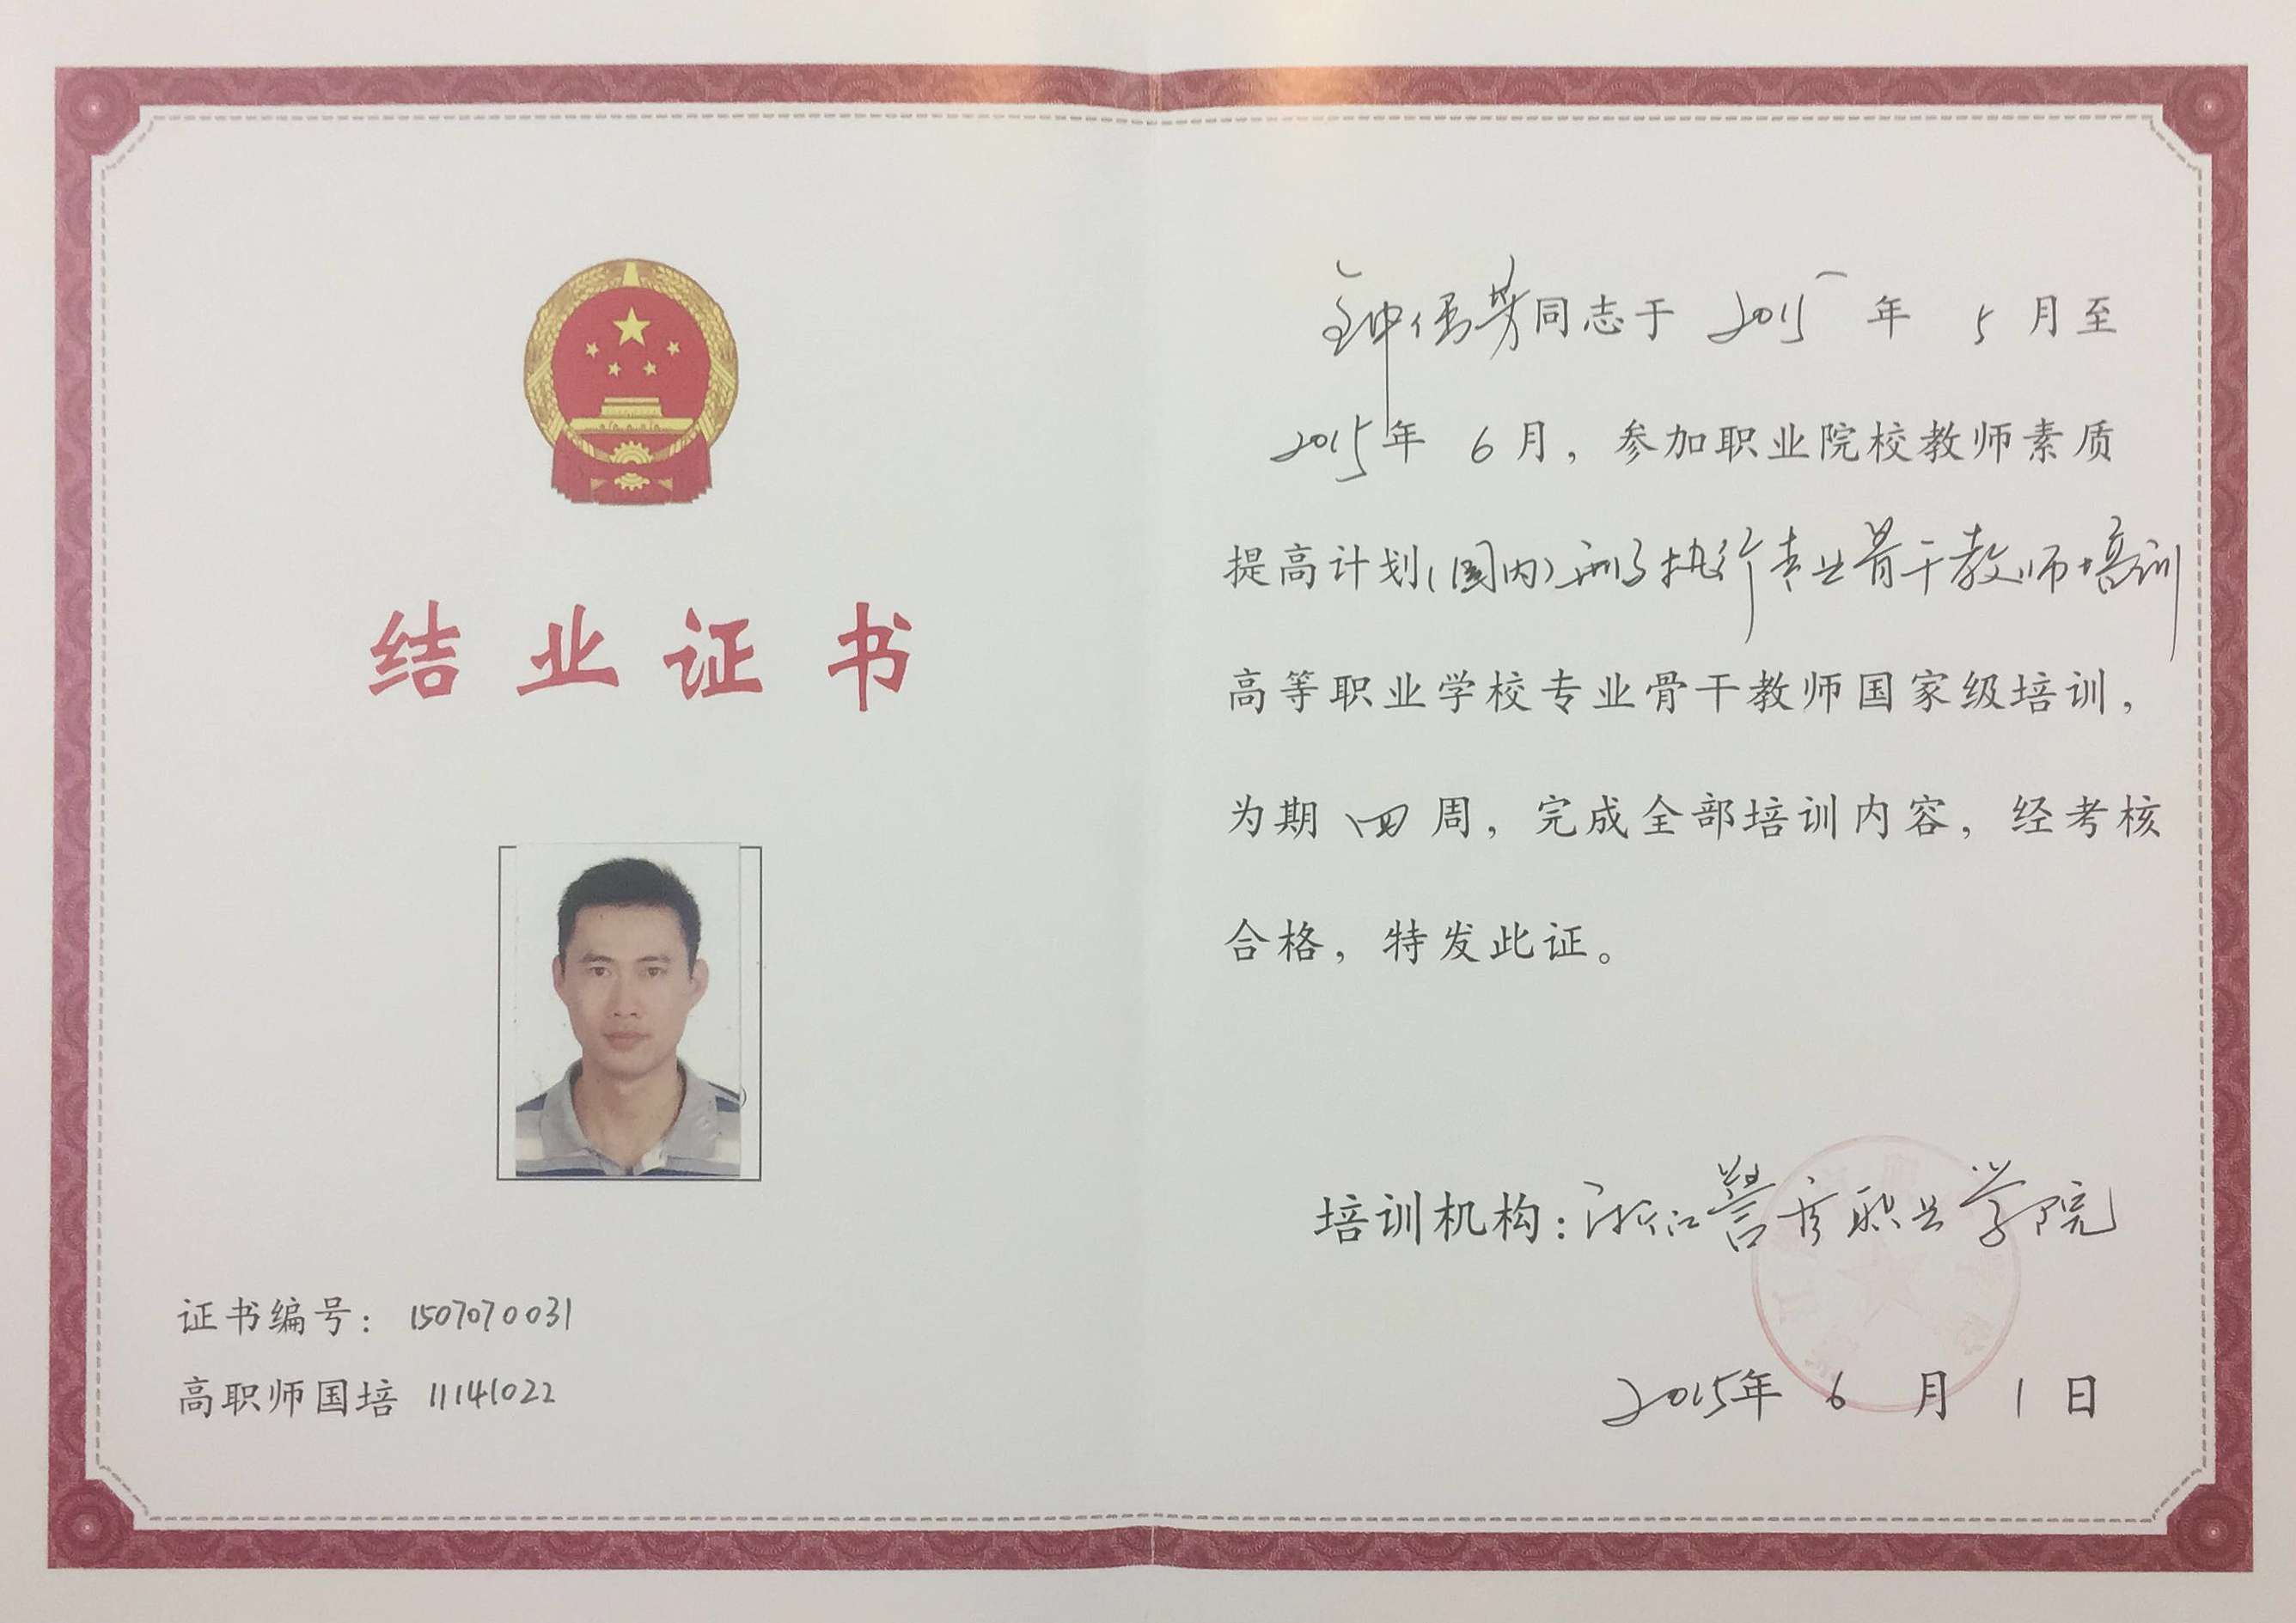 结业证书
证书编号：1507070031
高职师国培 11141022
钟儒芳同志于 2015 年 5 月至
2015年 6月，参加职业院校教师素质
提高计划(国内)刑事执行专业骨干教师培训
高等职业学校专业骨干教师国家级培训，
为期 四 周，完成全部培训内容，经考核
合格，特发此证。
培训机构：浙江警官职业学院
2015年 6 月 1 日